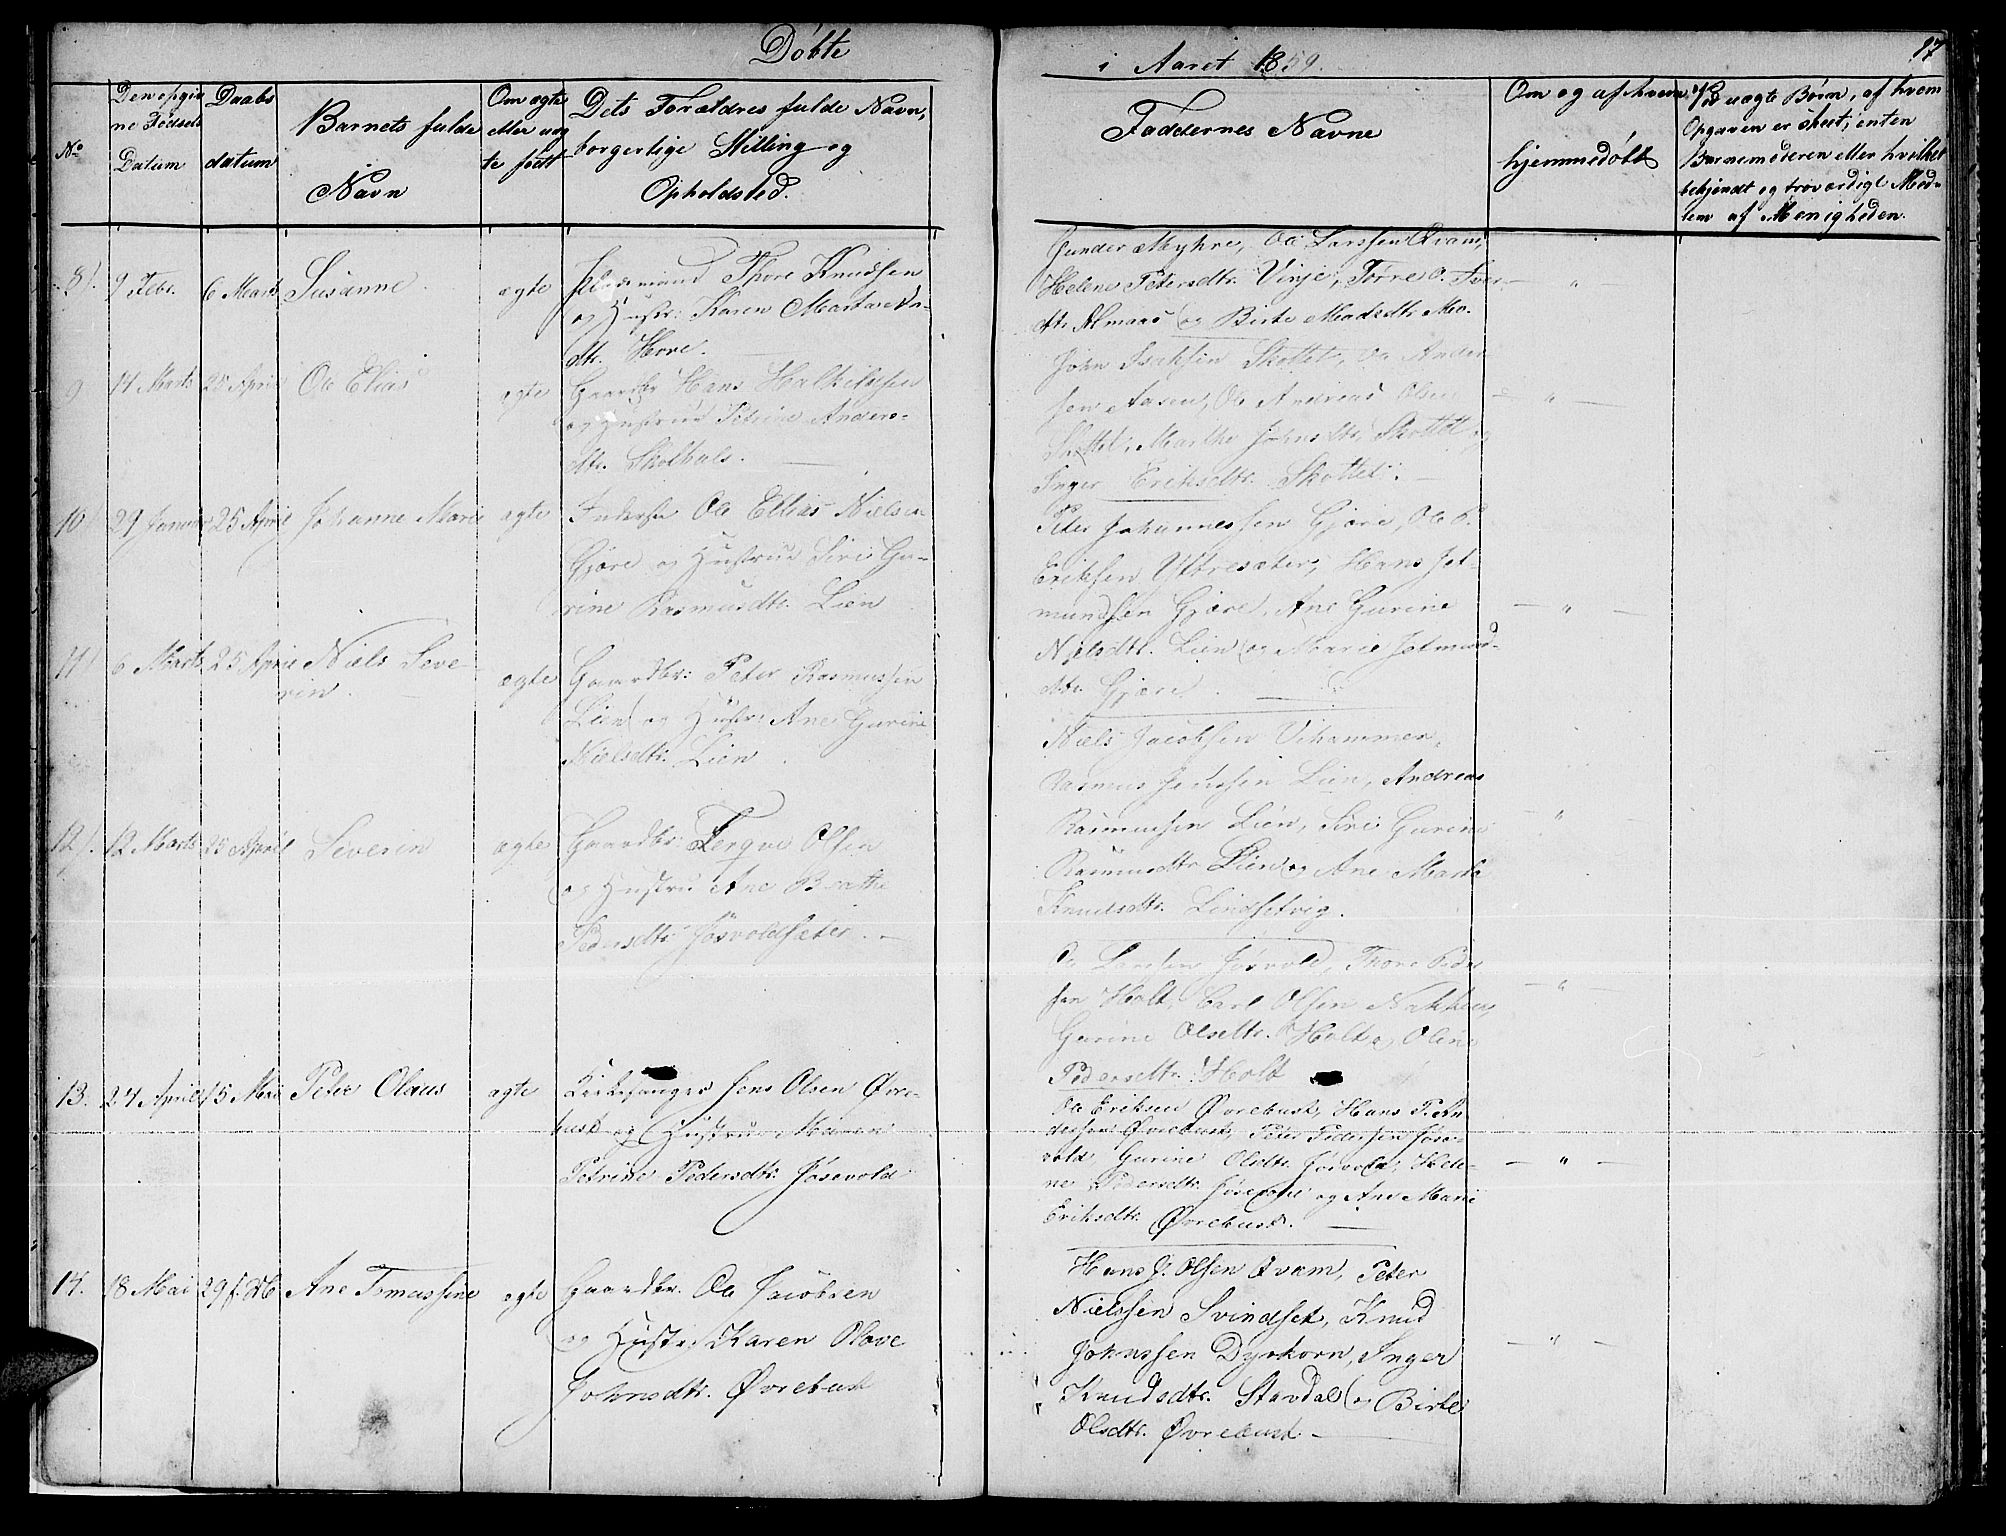 Döbte
i Aaret 1859.
87
No
Den opgiv
ne Fødsels
Datum
Daabs
datum
Barnets fulde
Navn
Om ægte
eller uæg
te født
Dets Forældres fulde Navn,
borgerlige Stilling og
Opholdsted.
Faddernes Navne
Om og af hvem
hjemmedöbt
Ved uægte Børn, af hvem
Opgaven er skeet, enten
Barnemoderen eller hvilket
bekjendt og troværdigt Med-
lem af Menigheden.
8/. 9 Febr. 6 Marts Susanne ægte
Thore Knudsen
og Hustr: Karen Martha
dtr. Hove.
Gunder Myhre, Ole Larssen Qvam,
Helene Petersdtr. Vinje,
dtr. Almaas og Birte Madsdtr.
9 14 Marts 25 April Ole Elias ægte
Gaardbr Hans Halkelssen
og Hustrue Petrine Anders-
dtr. Skolbals.
John Isaksen Skottet, Ander-
sen Aasen, Ole Andreas Olsen
Skottet, Marthe Johnsdtr. Skottet og
Inger Eriksdtr. Skottet.
10 29 Januar 25 April Johanne Marie ægte
Inderst Ole Ellias Nielsen
Gjøre og Hustrue Siri Gu-
rine Rasmusdtr. Lien
Peter Johannessen Gjøre, Ole P.
Eriksen Yttresæter, Hans Jet-
mundsen Gjøre, Ane Gurine
Nielsdtr. Lien og Marie Jetmund-
dtr. Gjøre.
11/ 6 Marts 25 April Niels Seve-
rin. ægte
Gaardbr: Peter Rasmussen
Lien og Hustr: Ane Gurine
Nielsdtr. Lien
Niels Jacobsen Vihammer,
Rasmus Jenssen Lien, Andreas
Rasmussen Lien, Siri Gurine
Rasmusdtr Lien og Ane Marte
Knudsdtr. Lindsetvig.
12/. 12 Marts 25 April Severin ægte
Gaardbr: Olsen
og Hustru Ane Berthe
Pedersdtr Jøsvoldsæter.
Larsen Jøsvold, Thore Peder
sen Holt, Carl Olsen Nakken,
Gurine Olsdtr. Holt og Oline
Pedersdtr. Holt
13. 24 April 15 Mai Peter Olaus ægte
Kirkesanger Jens Olsen Øvre-
bust og Hustrue Maren
Petrine Pedersdtr. Jøsevold
Ole Eriksen Øvrebust, Hans P. An
dersen Øvrebust, Peter Pedersen Jøse-
vold, Gurine Olsdtr. Jøsvold, Hele-
ne Pedersdtr. Jøsevold og Ane Marie
Eriksdtr. Øvrebust.
14. 18 Mai 29 f. M Ane Tomassine ægte
Gaardbr. Ole Jacobsen
og Hustr. Karen Olave
Johnsdtr. Øvrebust
Hans J. Olsen Qvam, Peter
Nielssen Svindset, Knud
Johnssen Dyrkorn, Inger
Knudsdtr. Stavdal og Birte
Olsdtr. Øvrebust